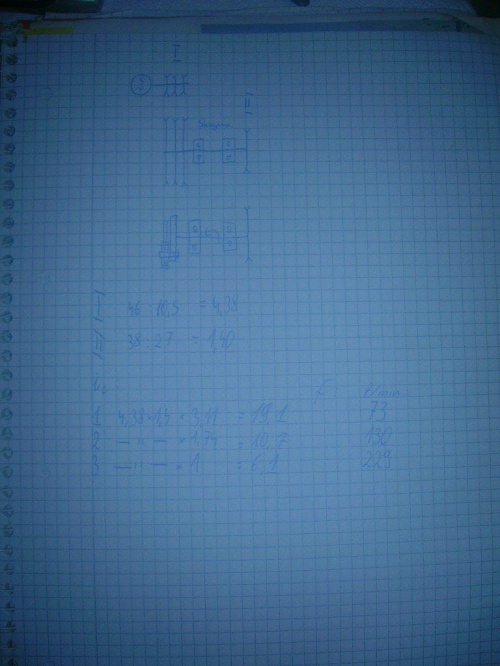 I
II
I 46 : 10,5 = 4,38
II 38 : 27 = 1,40
1 4,38 × 1,4 × 3,11 = 19,1 73
2 — " — × 1,74 = 10,7 130
3 — " — × 1 = 6,1 229